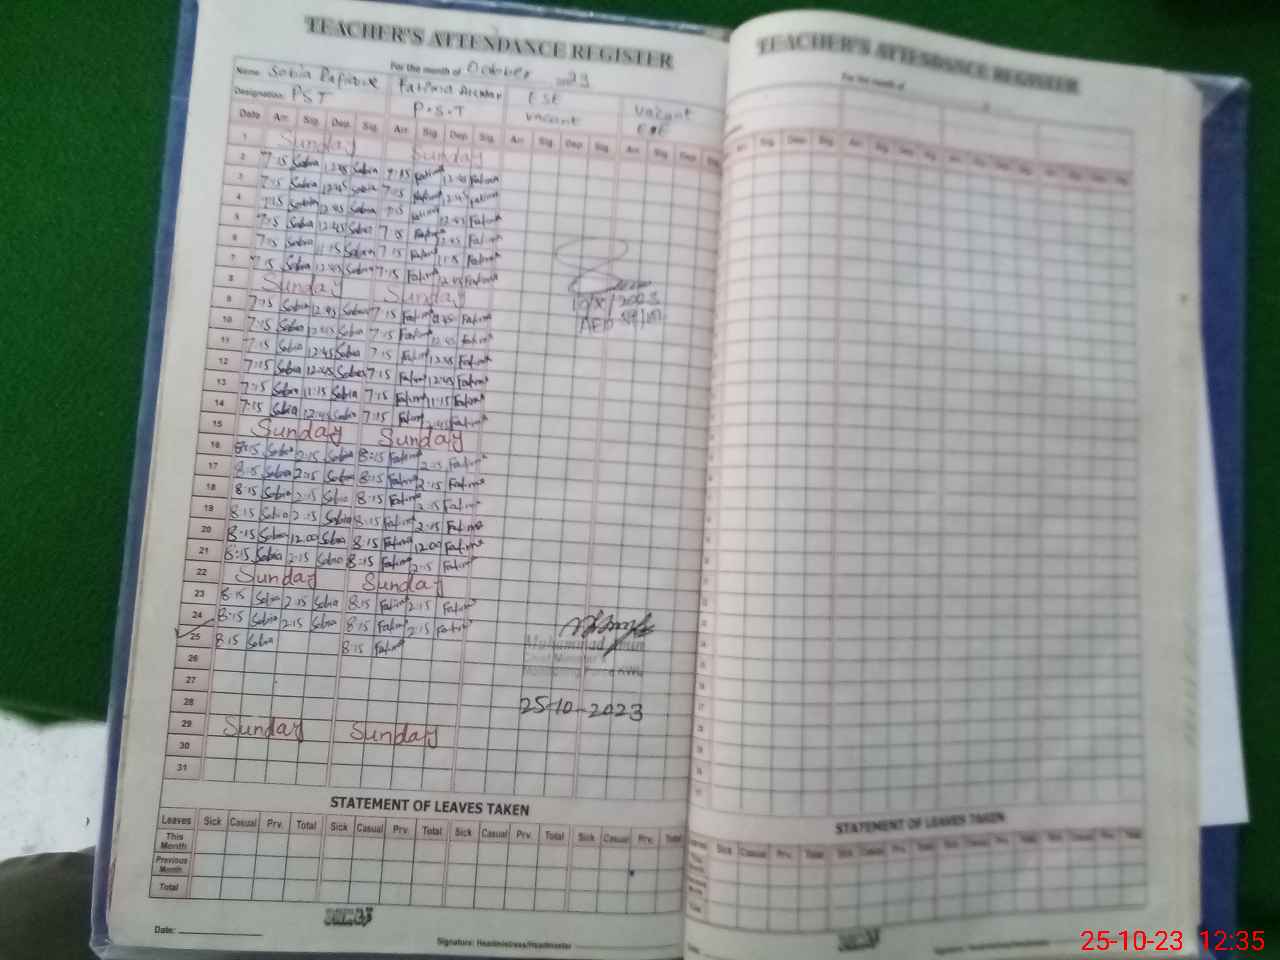 TEACHER'S ATTENDANCE REGISTER
For the month of October 23
Name: Sobia Fatima Vacant
Designation: PST P.S.T ESE Vacant ESE
Date Arr. Sig. Dep. Sig. Arr. Sig. Dep. Sig. Arr. Sig. Dep. Sig. Arr. Sig. Dep. Sig.
1 Sunday Sunday
2 7:15 Sobia 12:45 Sobia 7:15 Fatima 12:45 Fatima
3 7:15 Sobia 12:45 Sobia 7:15 Fatima 12:45 Fatima
4 7:15 Sobia 12:45 Sobia 7:15 Fatima 12:45 Fatima
5 7:15 Sobia 12:45 Sobia 7:15 Fatima 12:45 Fatima
6 7:15 Sobia 11:15 Sobia 7:15 Fatima 11:15 Fatima
7 7:15 Sobia 12:45 Sobia 7:15 Fatima 12:45 Fatima
8 Sunday Sunday
9 7:15 Sobia 12:45 Sobia 7:15 Fatima 12:45 Fatima
10 7:15 Sobia 12:45 Sobia 7:15 Fatima 12:45 Fatima
11 7:15 Sobia 12:45 Sobia 7:15 Fatima 12:45 Fatima
12 7:15 Sobia 12:45 Sobia 7:15 Fatima 12:45 Fatima
13 7:15 Sobia 11:15 Sobia 7:15 Fatima 11:15 Fatima
14 7:15 Sobia 12:45 Sobia 7:15 Fatima 12:45 Fatima
15 Sunday Sunday
16 8:15 Sobia 2:15 Sobia 8:15 Fatima 2:15 Fatima
17 8:15 Sobia 2:15 Sobia 8:15 Fatima 2:15 Fatima
18 8:15 Sobia 2:15 Sobia 8:15 Fatima 2:15 Fatima
19 8:15 Sobia 2:15 Sobia 8:15 Fatima 2:15 Fatima
20 8:15 Sobia 12:00 Sobia 8:15 Fatima 12:00 Fatima
21 8:15 Sobia 2:15 Sobia 8:15 Fatima 2:15 Fatima
22 Sunday Sunday
23 8:15 Sobia 2:15 Sobia 8:15 Fatima 2:15 Fatima
24 8:15 Sobia 2:15 Sobia 8:15 Fatima 2:15 Fatima
25 8:15 Sobia 8:15 Fatima
26
27
28
29 Sunday Sunday
30
31
/X/2023
AEO
Muhammad
25-10-2023
STATEMENT OF LEAVES TAKEN
Leaves Sick Casual Prv. Total Sick Casual Prv. Total Sick Casual Prv. Total Sick Casual Prv. Total
This Month
Previous Month
Total
Date:
Signature: Headmistress/Headmaster
TEACHER'S ATTENDANCE REGISTER
For the month of
STATEMENT OF LEAVES TAKEN
Sick Casual Prv. Total
25-10-23 12:35